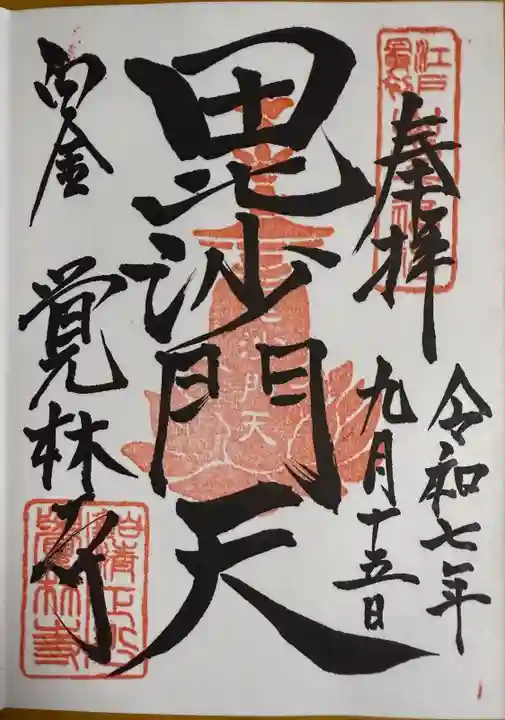 奉拝
令和七年
九月十五日
毘沙門天
白金
覚林寺
江戸
毘沙門天
覺林寺